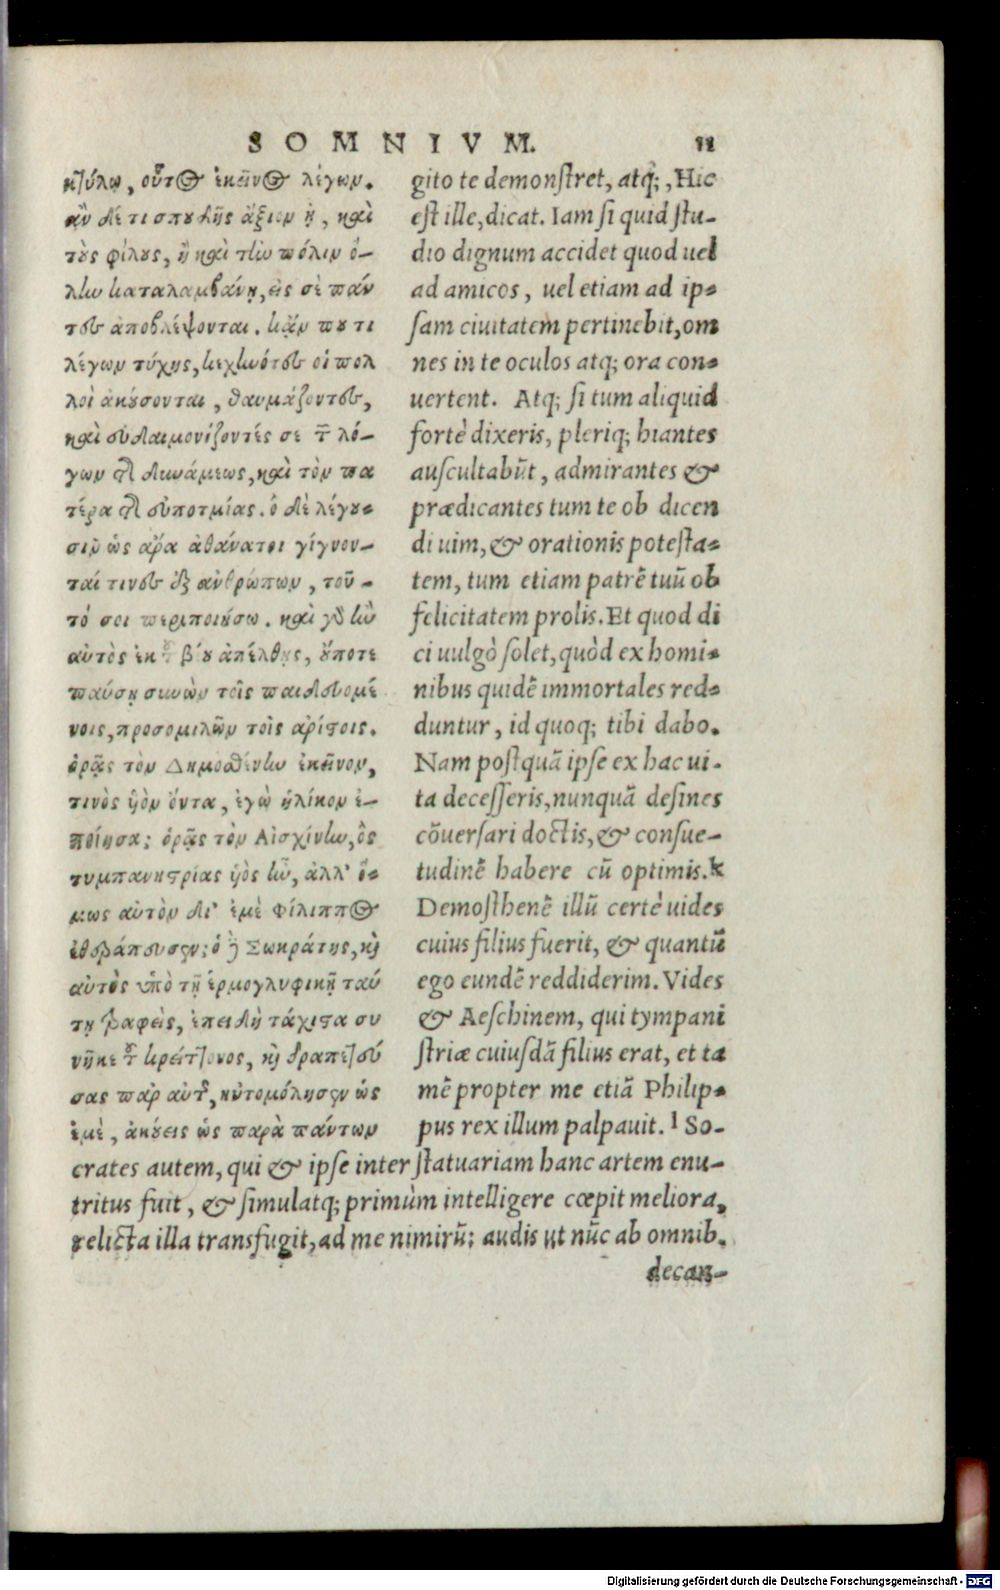 SOMNIVM. 11
κτύλῳ, οὗτος ἐκεῖνος λέγων.
ἂν δέ τι σπουδῆς ἄξιον ᾖ, καὶ
τοὺς φίλους, ἢ καὶ τὴν πόλιν ὅ-
λην καταλαμβάνῃ, εἰς σὲ πάν
τες ἀποβλέψονται. κἄν που τι
λέγων τύχῃς, κεχηνότες οἱ πολ
λοὶ ἀκούσονται, θαυμάζοντες,
καὶ εὐδαιμονίζοντές σε τῶν λό-
γων τῆς δυνάμεως, καὶ τὸν πα
τέρα τῆς εὐποτμίας. ὃ δὲ λέγου-
σιν ὡς ἄρα ἀθάνατοι γίγνον-
ταί τινες ἐξ ἀνθρώπων, τοῦ-
τό σοι περιποιήσω. καὶ γὰρ ἢν
αὐτὸς ἐκ τοῦ βίου ἀπέλθῃς, οὔποτε
παύσῃ συνὼν τοῖς παιδευομέ
νοις, προσομιλῶν τοῖς ἀρίστοις.
ὁρᾷς τὸν Δημοσθένην ἐκεῖνον,
τίνος υἱὸν ὄντα, ἐγὼ ἡλίκον ἐ-
ποίησα; ὁρᾷς τὸν Αἰσχίνην, ὃς
τυμπανιστρίας υἱὸς ἦν, ἀλλ' ὅ-
μως αὐτὸν δι' ἐμὲ Φίλιππος
ἐθεράπευσεν; ὁ δὲ Σωκράτης, καὶ
αὐτὸς ὑπὸ τῇ ἑρμογλυφικῇ ταύ
τῃ τραφεὶς, ἐπειδὴ τάχιστα συ
νῆκε τοῦ κρείττονος, καὶ δραπετεύ
σας παρ' αὐτῆς, ηὐτομόλησεν ὡς
ἐμὲ, ἀκούεις ὡς παρὰ πάντων
gito te demonſtret, atq;, Hic
eſt ille, dicat. Iam ſi quid ſtu-
dio dignum accidet quod uel
ad amicos, uel etiam ad ip-
ſam ciuitatem pertinebit, om
nes in te oculos atq; ora con-
uertent. Atq; ſi tum aliquid
fortè dixeris, pleriq; hiantes
auſcultabūt, admirantes &
prædicantes tum te ob dicen
di uim, & orationis poteſta-
tem, tum etiam patrē tuū ob
felicitatem prolis. Et quod di
ci uulgò ſolet, quòd ex homi-
nibus quidē immortales red-
duntur, id quoq; tibi dabo.
Nam poſtquā ipſe ex hac ui-
ta deceſſeris, nunquā deſines
cōuerſari doctis, & conſue-
tudinē habere cū optimis. k
Demoſthenē illū certè uides
cuius filius fuerit, & quantū
ego eundē reddiderim. Vides
& Aeſchinem, qui tympani
ſtriæ cuiuſdā filius erat, et ta
mē propter me etiā Philip-
pus rex illum palpauit. l So-
crates autem, qui & ipſe inter ſtatuariam hanc artem enu-
tritus fuit, & ſimulatq; primùm intelligere cœpit meliora,
relicta illa transfugit, ad me nimirū: audis ut nūc ab omnib.
decan-
Digitalisierung gefördert durch die Deutsche Forschungsgemeinschaft - DFG